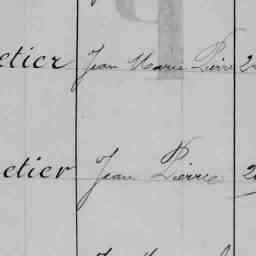 etier Jean Marie Pierre 2
etier Jean Pierre 2